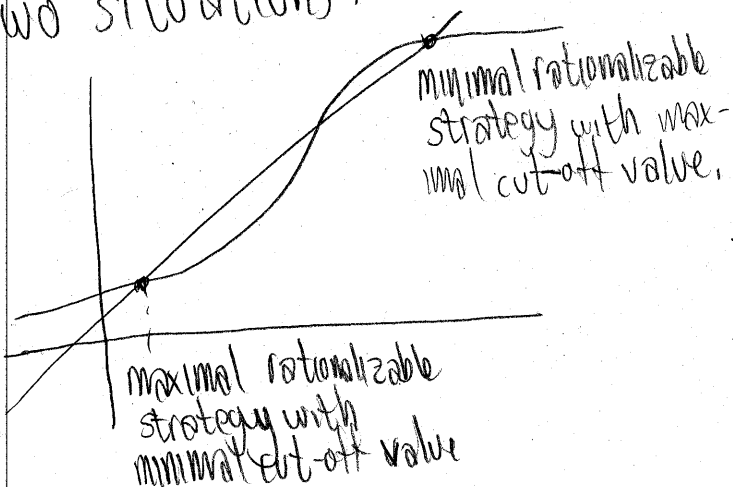 wo situations.
minimal rationalizable
strategy with max-
imal cut-off value.
maximal rationalizable
strategy with
minimal cut-off value